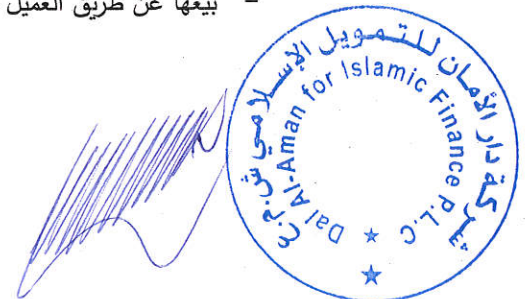 - بيعها عن طريق العميل
شركة دار الأمان للتمويل الإسلامي ش.م.ع
Dal Al-Aman for Islamic Finance P.L.C